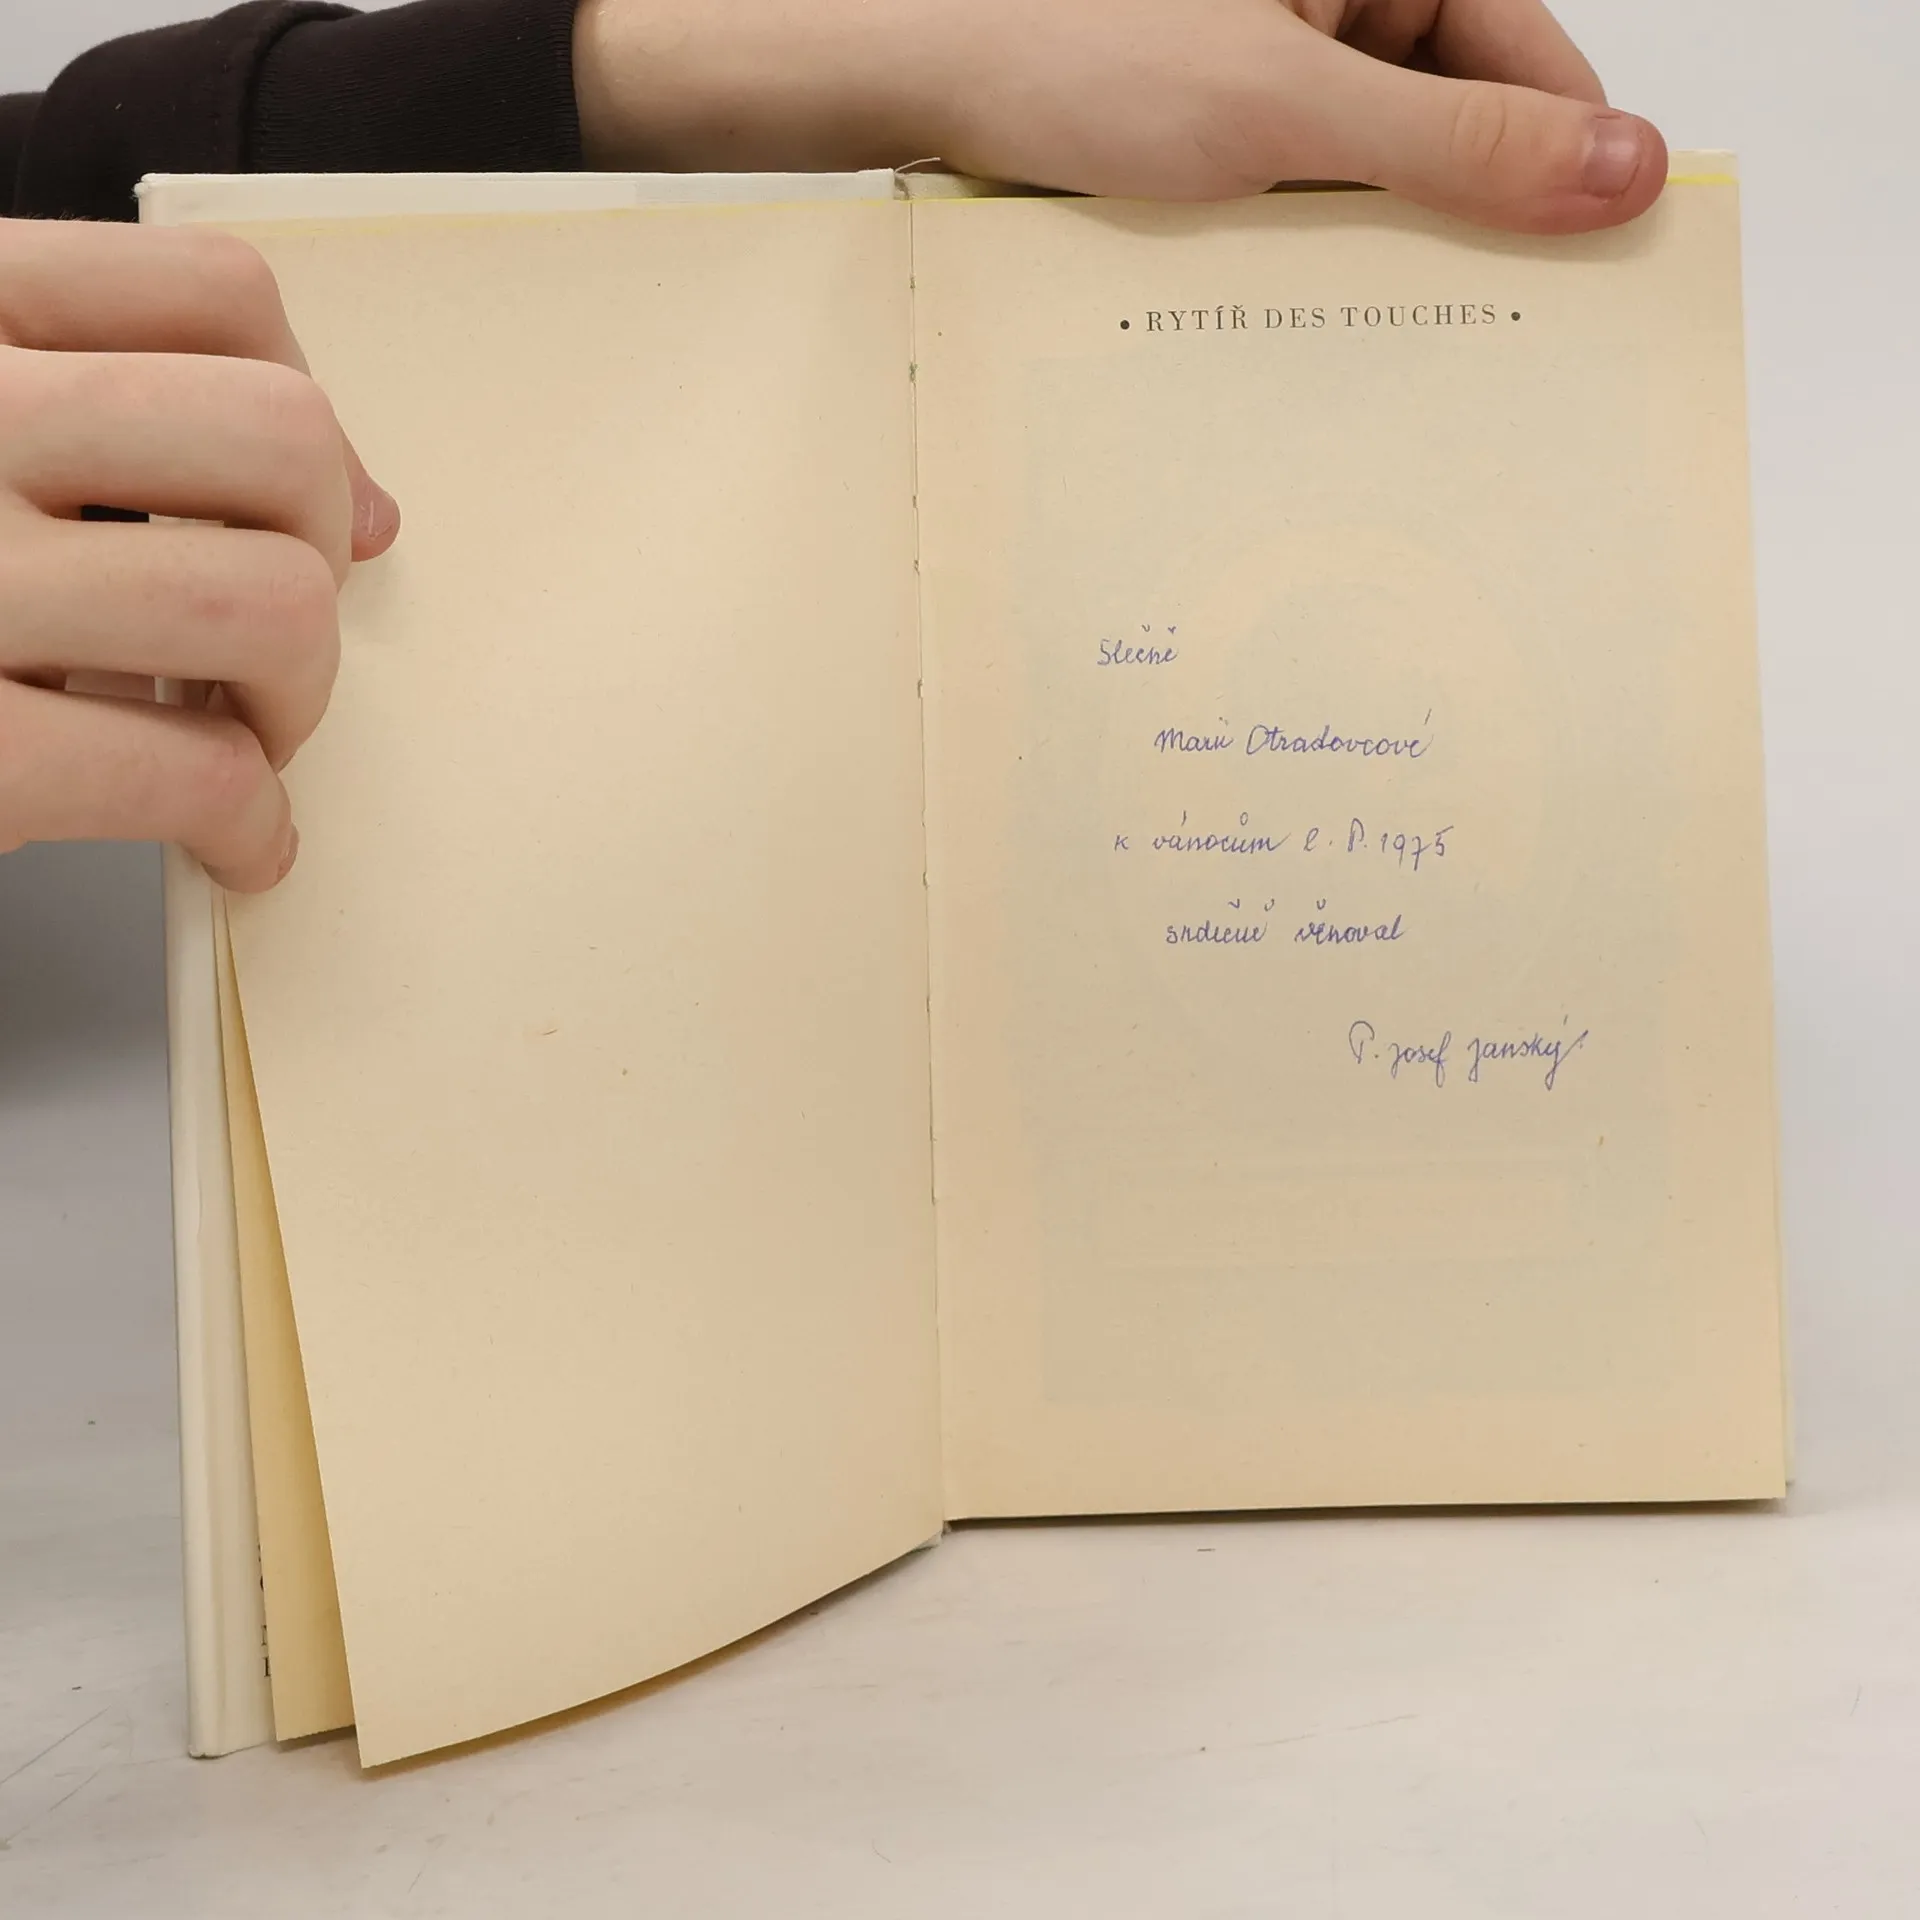 • RYTÍŘ DES TOUCHES •
Slečně
Marii Otradovcové
k vánocům L. P. 1975
srdečně věnoval
P. Josef Janský